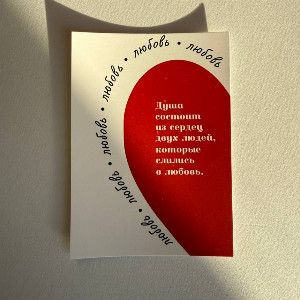 любовь • любовь • любовь • любовь • любовь • любовь
Душа
состоит
из сердец
двух людей,
которые
слились
в любовь.